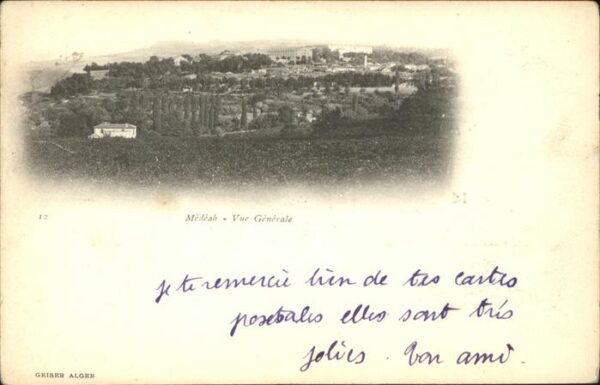 12
Médéah - Vue Générale
je te remercie bien de tes cartes
postales elles sont très
jolies. Ton ami.
GEISER ALGER